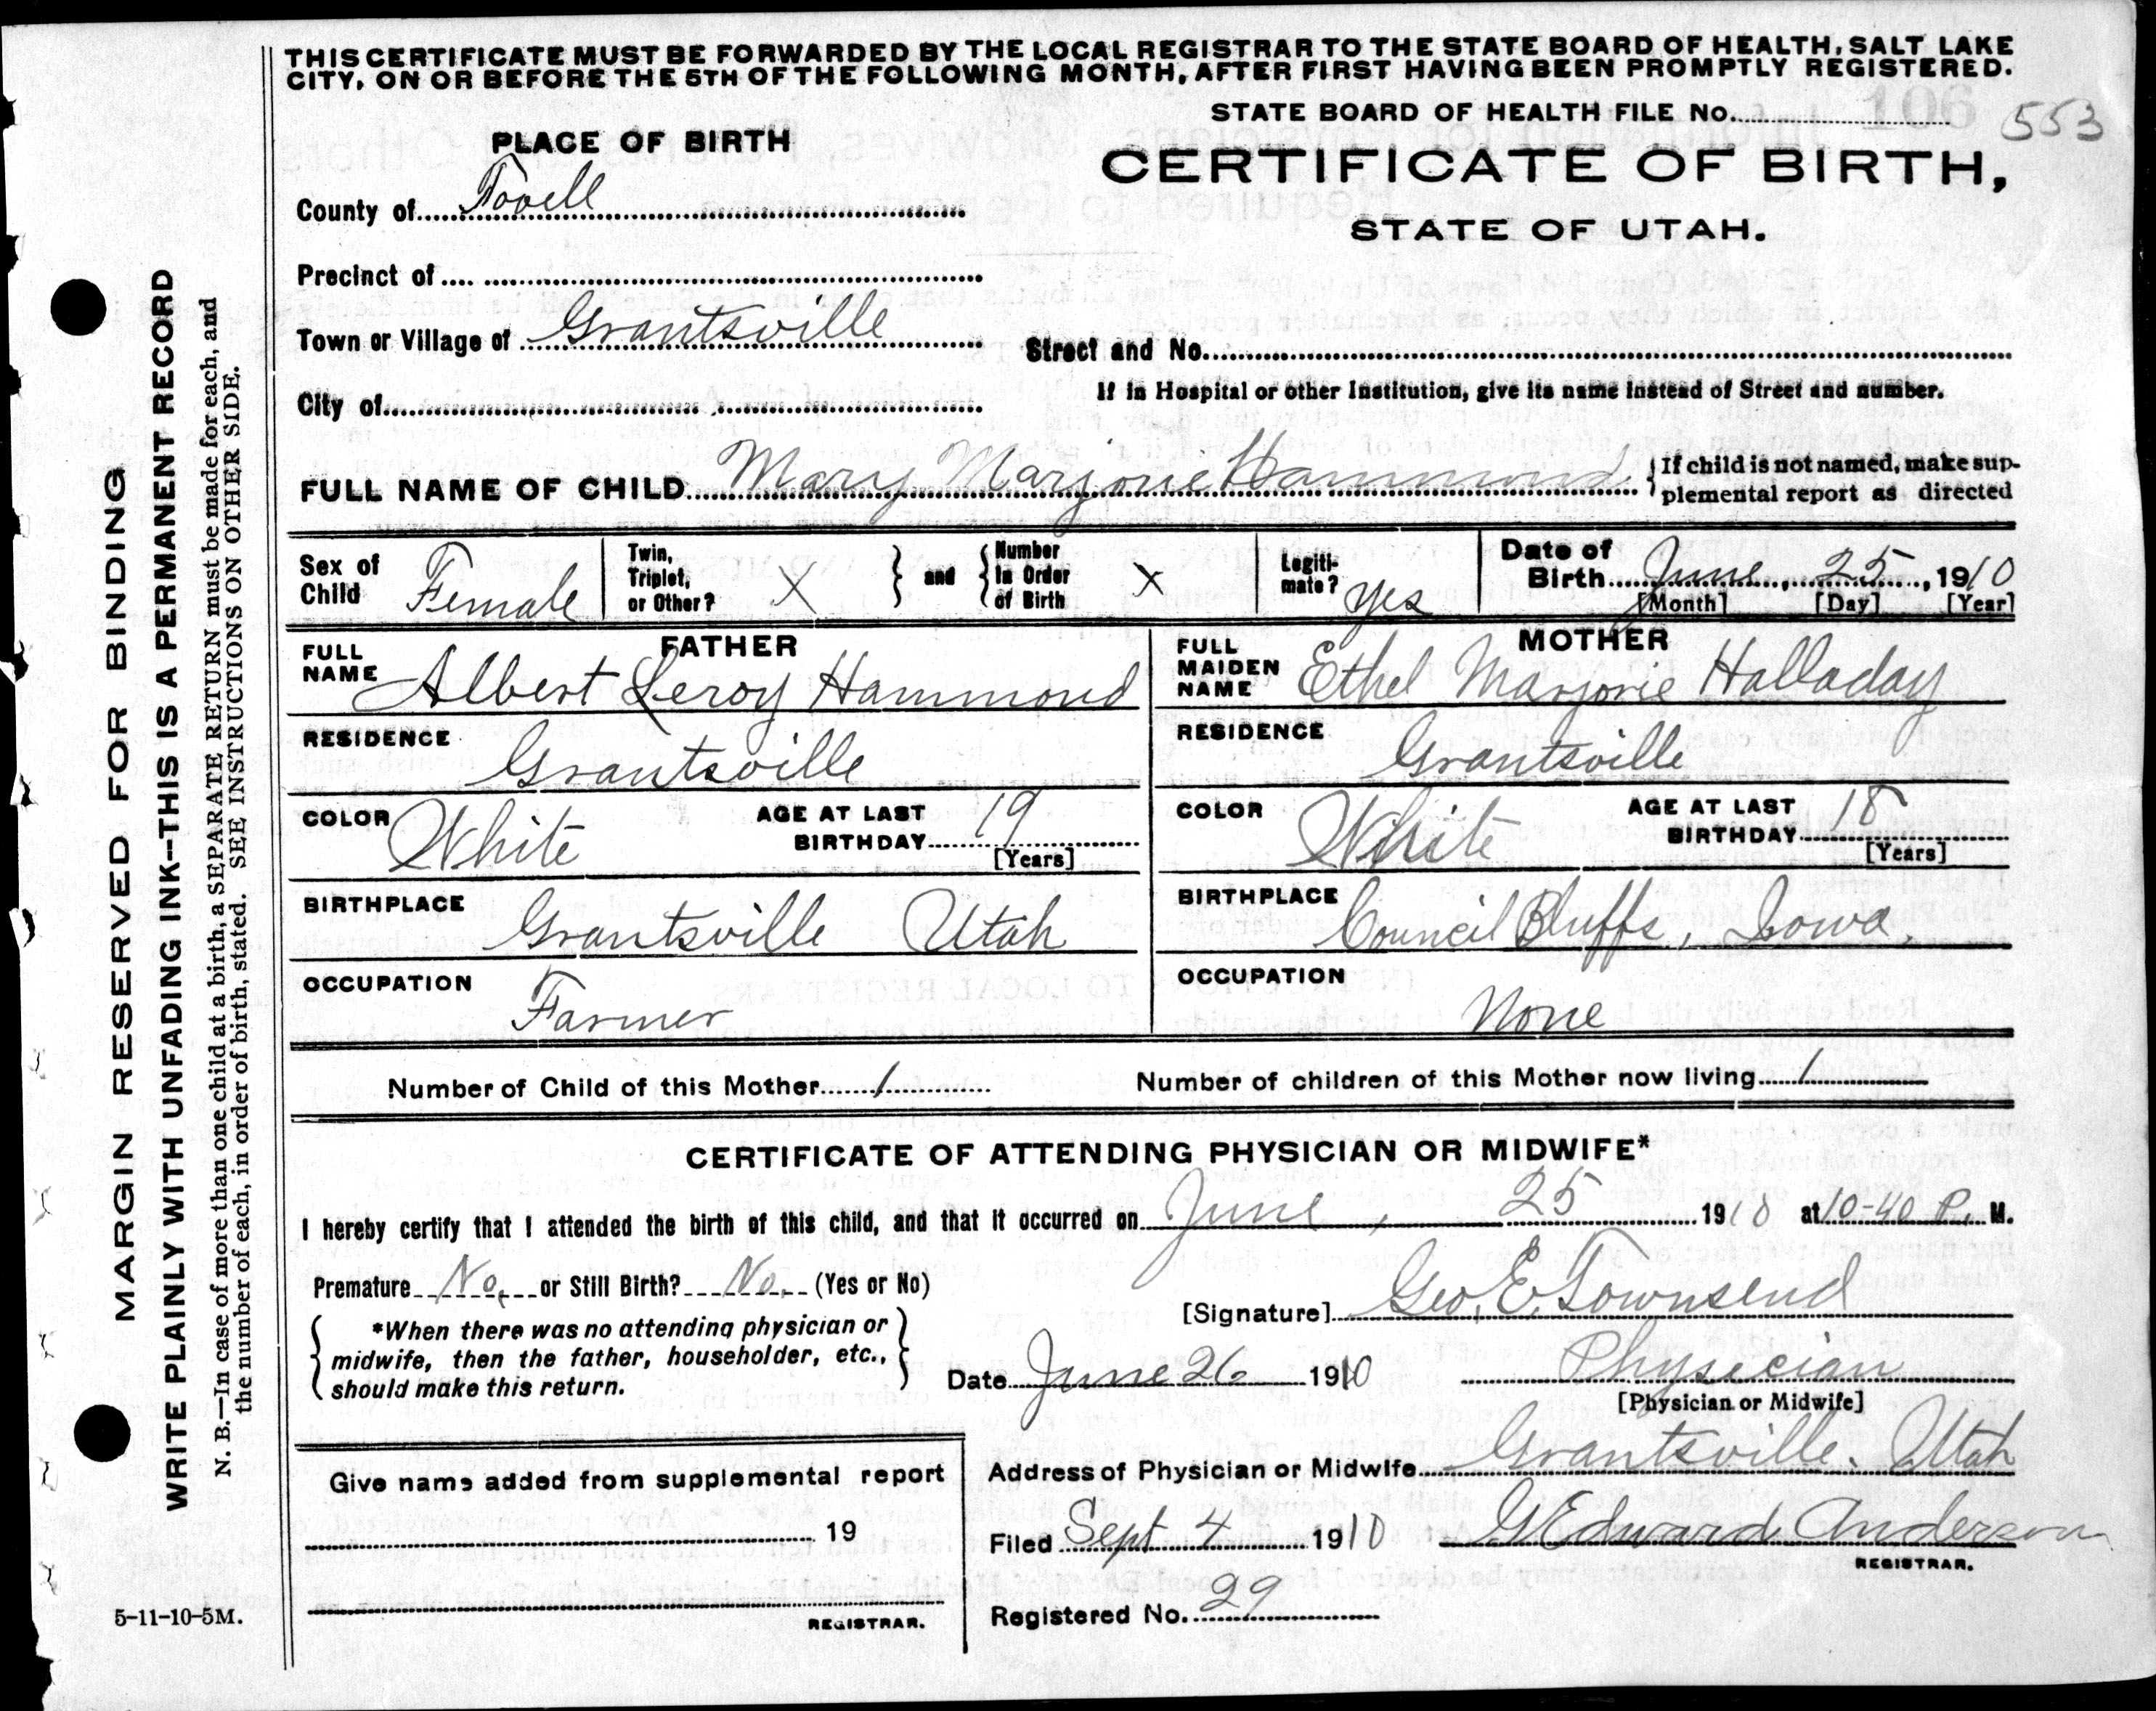 THIS CERTIFICATE MUST BE FORWARDED BY THE LOCAL REGISTRAR TO THE STATE BOARD OF HEALTH, SALT LAKE
CITY, ON OR BEFORE THE 5TH OF THE FOLLOWING MONTH, AFTER FIRST HAVING BEEN PROMPTLY REGISTERED.
STATE BOARD OF HEALTH FILE No. 106 553
PLACE OF BIRTH
CERTIFICATE OF BIRTH,
STATE OF UTAH.
County of Tooell
Precinct of
Town or Village of Grantsville
Street and No.
If in Hospital or other Institution, give its name instead of Street and number.
City of
FULL NAME OF CHILD Mary Marjorie Hammond
If child is not named, make sup-
plemental report as directed
Sex of
Child Female
Twin,
Triplet,
or Other? X
and
Number
In Order
of Birth X
Legiti-
mate? Yes
Date of
Birth June, 25, 1910
[Month] [Day] [Year]
FATHER
FULL
NAME Albert Leroy Hammond
MOTHER
FULL
MAIDEN
NAME Ethel Marjorie Halladay
RESIDENCE Grantsville
RESIDENCE Grantsville
COLOR White
AGE AT LAST
BIRTHDAY 19
[Years]
COLOR White
AGE AT LAST
BIRTHDAY 18
[Years]
BIRTHPLACE Grantsville Utah
BIRTHPLACE Council Bluffs, Iowa.
OCCUPATION Farmer
OCCUPATION None
Number of Child of this Mother 1
Number of children of this Mother now living 1
CERTIFICATE OF ATTENDING PHYSICIAN OR MIDWIFE*
I hereby certify that I attended the birth of this child, and that it occurred on June, 25 1910 at 10-40 P. M.
Premature No, or Still Birth? No. (Yes or No)
[Signature] Geo. E. Townsend
*When there was no attending physician or
midwife, then the father, householder, etc.,
should make this return.
Date June 26 1910
Physician
[Physician or Midwife]
Give name added from supplemental report
19
REGISTRAR.
Address of Physician or Midwife Grantsville. Utah
Filed Sept 4 1910
G Edward Anderson
REGISTRAR.
Registered No. 29
MARGIN RESERVED FOR BINDING
WRITE PLAINLY WITH UNFADING INK—THIS IS A PERMANENT RECORD
N. B.—In case of more than one child at a birth, a SEPARATE RETURN must be made for each, and
the number of each, in order of birth, stated. SEE INSTRUCTIONS ON OTHER SIDE.
5-11-10-5M.